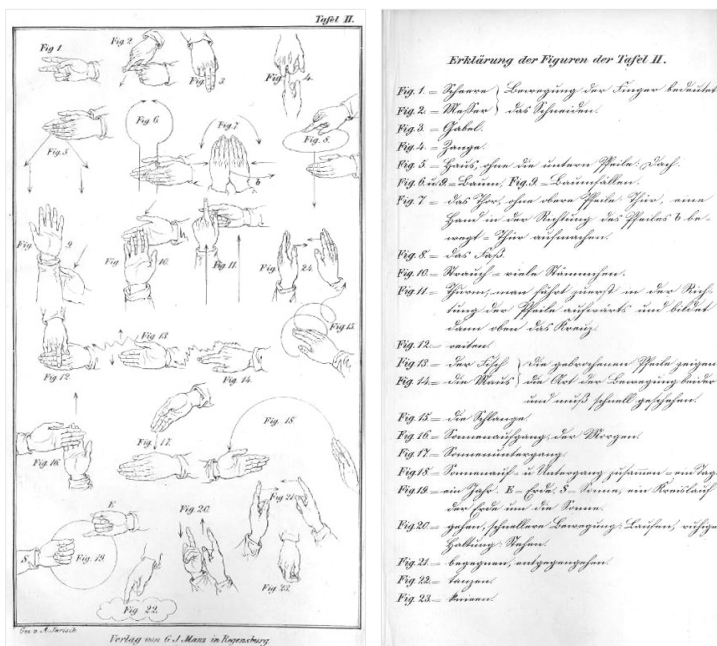 Tafel II.
Fig 1.
Fig. 2
Fig 3
4.
Fig. 5
Fig 6
Fig 7
Fig. 8.
b
Fig 9
Fig 10.
Fig 11.
Fig 24.
Fig 15.
Fig. 12.
Fig 13
Fig. 14.
Fig. 16.
Fig. 17.
Fig. 18.
E
S
Fig. 19.
Fig. 20.
Fig 21.
Fig 22.
Fig 23.
Gez. v. A. Jarisch
Verlag von G J. Manz in Regensburg.
Erklärung der Figuren der Tafel II.
Fig. 1. = Scheere } Bewegung der Finger bedeutet
Fig. 2. = Messer } das Schneiden.
Fig. 3. = Gabel.
Fig. 4. = Zange.
Fig. 5. = Haus, ohne die untern Pfeile: Dach.
Fig. 6. u. 9. = Baum, Fig. 9. = Baumfällen.
Fig. 7 = das Thor, ohne obere Pfeile: Thür, eine
Hand in der Richtung des Pfeiles b be-
wegt = Thür aufmachen.
Fig. 8. = das Faß.
Fig. 10. = Strauch = viele Stämmchen.
Fig. 11. = Thurm, man führt zuerst in der Rich-
tung der Pfeile aufwärts und bildet
dann oben das Kreuz.
Fig. 12. = reiten.
Fig. 13 = der Fisch } die gebrochenen Pfeile zeigen
Fig. 14. = die Maus } die Art der Bewegung beider
und muß schnell geschehen.
Fig. 15 = die Schlange.
Fig. 16 = Sonnenaufgang, der Morgen.
Fig. 17 = Sonnenuntergang.
Fig. 18 = Sonnenauf- u. Untergang zusammen = ein Tag.
Fig. 19 = ein Jahr. E = Erde, S = Sonne, ein Kreislauf
der Erde um die Sonne.
Fig. 20 = gehen, schnellere Bewegung: Laufen, ruhige
Haltung: Stehen.
Fig. 21. = begegnen, entgegengehen.
Fig. 22 = tanzen.
Fig. 23 = knieen.